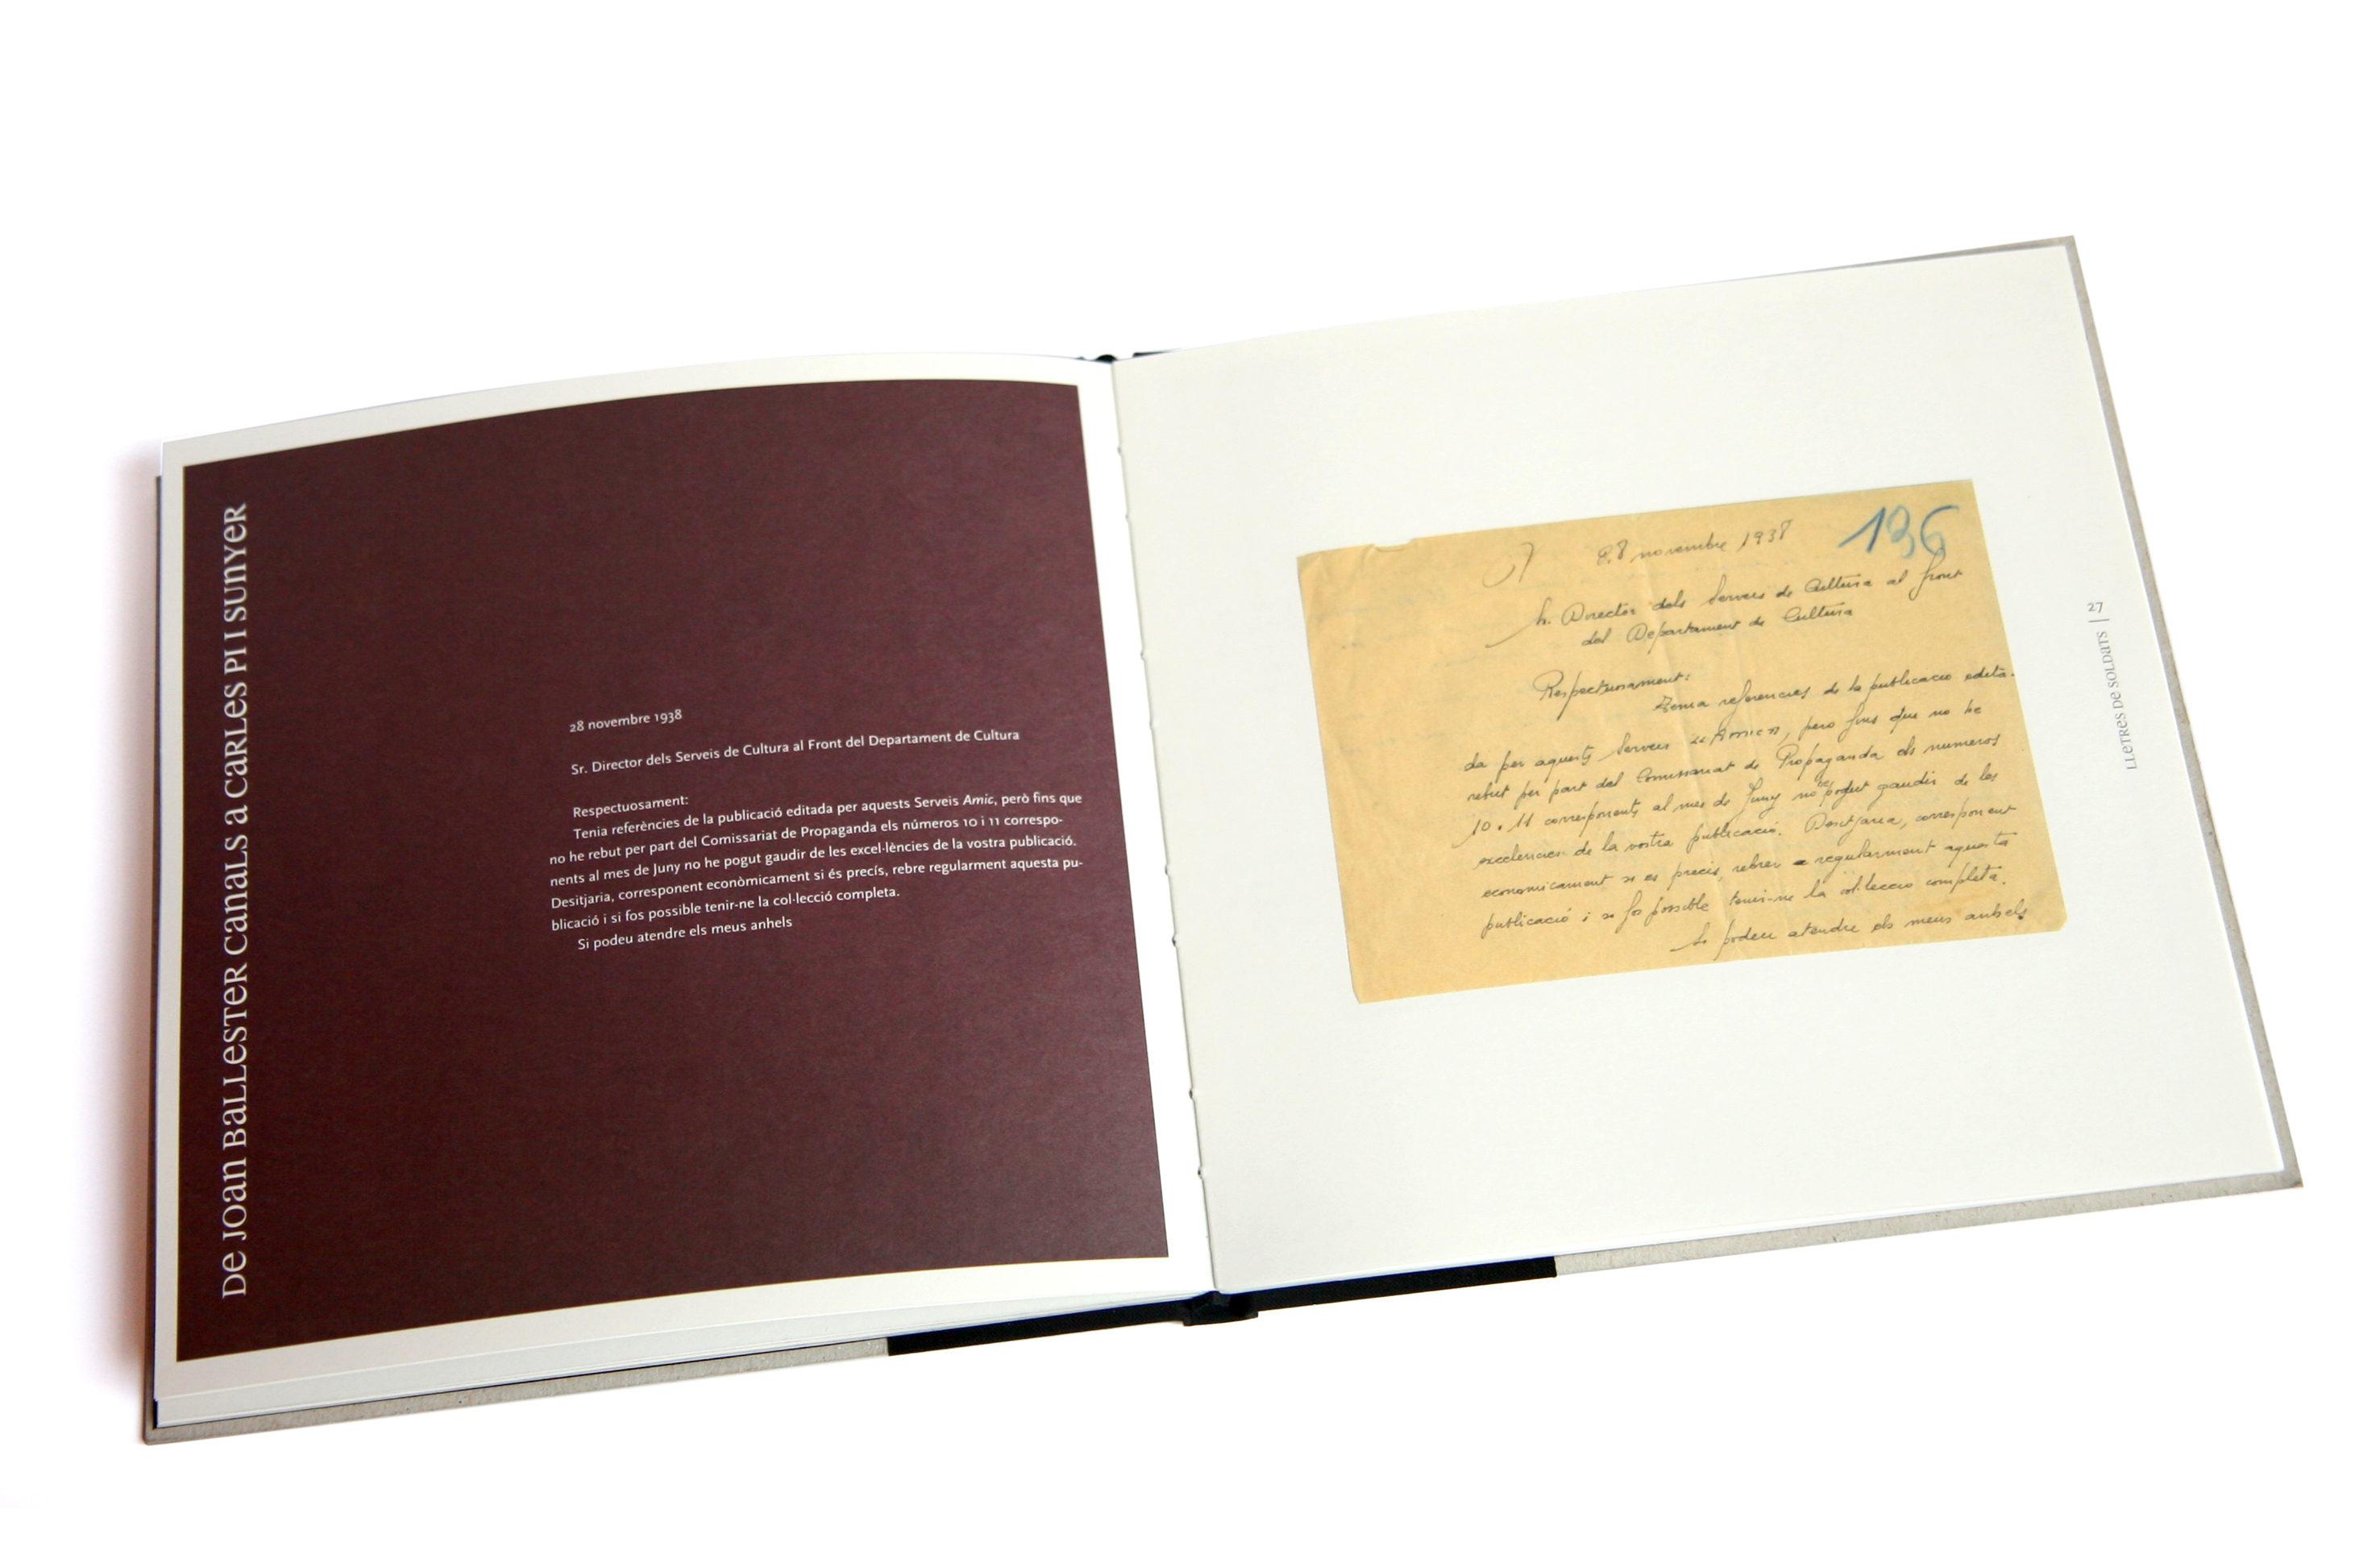 De Joan Ballester Canals a Carles Pi i Sunyer
28 novembre 1938
Sr. Director dels Serveis de Cultura al Front del Departament de Cultura
Respectuosament:
Tenia referències de la publicació editada per aquests Serveis Amic, però fins que
no he rebut per part del Comissariat de Propaganda els números 10 i 11 correspo-
nents al mes de Juny no he pogut gaudir de les excel·lències de la vostra publicació.
Desitjaria, corresponent econòmicament si és precís, rebre regularment aquesta pu-
blicació i si fos possible tenir-ne la col·lecció completa.
Si podeu atendre els meus anhels
136
28 novembre 1938
Sr. Director dels Serveis de Cultura al Front
del Departament de Cultura
Respectuosament:
Tenia referencies de la publicacio edita-
da per aquests Serveis "Amic", pero fins que no he
rebut per part del Comissariat de Propaganda els numeros
10 i 11 corresponents al mes de Juny no he pogut gaudir de les
excelencies de la vostra publicació. Desitjaria, corresponent
economicament si es precis, rebrer regularment aquesta
publicació i si fos possible tenir-ne la col·leccio completa.
Si podeu atendre els meus anhels
Lletres de soldats | 27